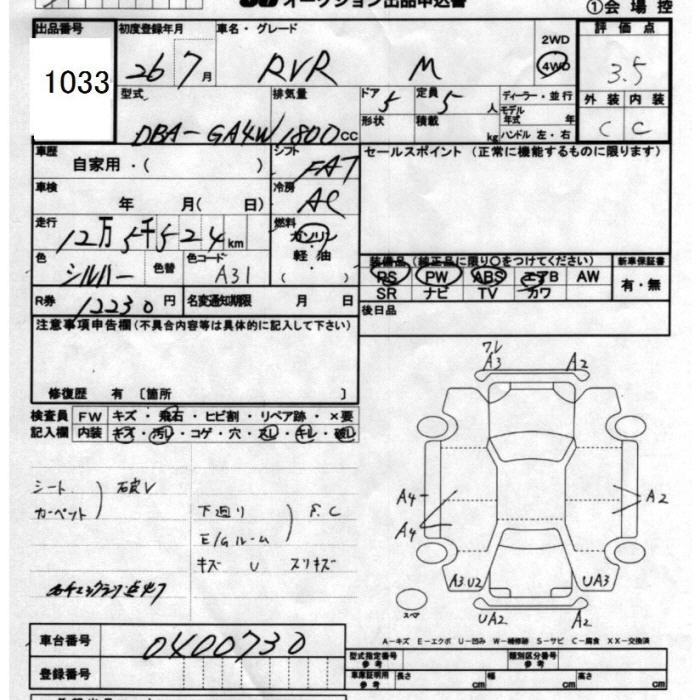 オークション出品申込書
①会場控
出品番号 初度登録年月 車名・グレード 2WD 評価点
1033 26 7月 RVR M 4WD 3.5
型式 排気量 ドア 5 定員 5人 ディーラー・並行 外装 内装
DBA-GA4W 1800cc 形状 積載 kg モデル年式 年 C C
ハンドル 左・右
車歴 自家用・( ) シフト FAT セールスポイント (正常に機能するものに限ります)
車検 年 月( 日) 冷房 AC
走行 12万5千524km 燃料 ガソリン
軽・油
( )
色 シルバー 色替 色コード A31
装備品 (純正品に限り○をつけてください) 新車保証書
PS PW ABS エアB AW 有・無
SR ナビ TV カワ
R券 12230円 名変通知期限 月 日
後日品
注意事項申告欄(不具合内容等は具体的に記入して下さい)
修復歴 有 〔箇所 〕
検査員 FW キズ・飛石・ヒビ割・リペア跡・×要
記入欄 内装 キズ・汚レ・コゲ・穴・スレ・キレ・破レ
シート
カーペット
下廻り S.C
E/Gルーム
キズ U スリキズ
ワレ
A3 A2
A4 A2
A4
A3U2 UA3
UA2 A2
スペア
A-キズ E-エクボ U-凹み W-補修跡 S-サビ C-腐食 XX-交換済
車台番号 0400730
登録番号
型式指定番号 参考 類別区分番号 参考
車庫証明用 参考 長さ cm 幅 cm 高さ cm